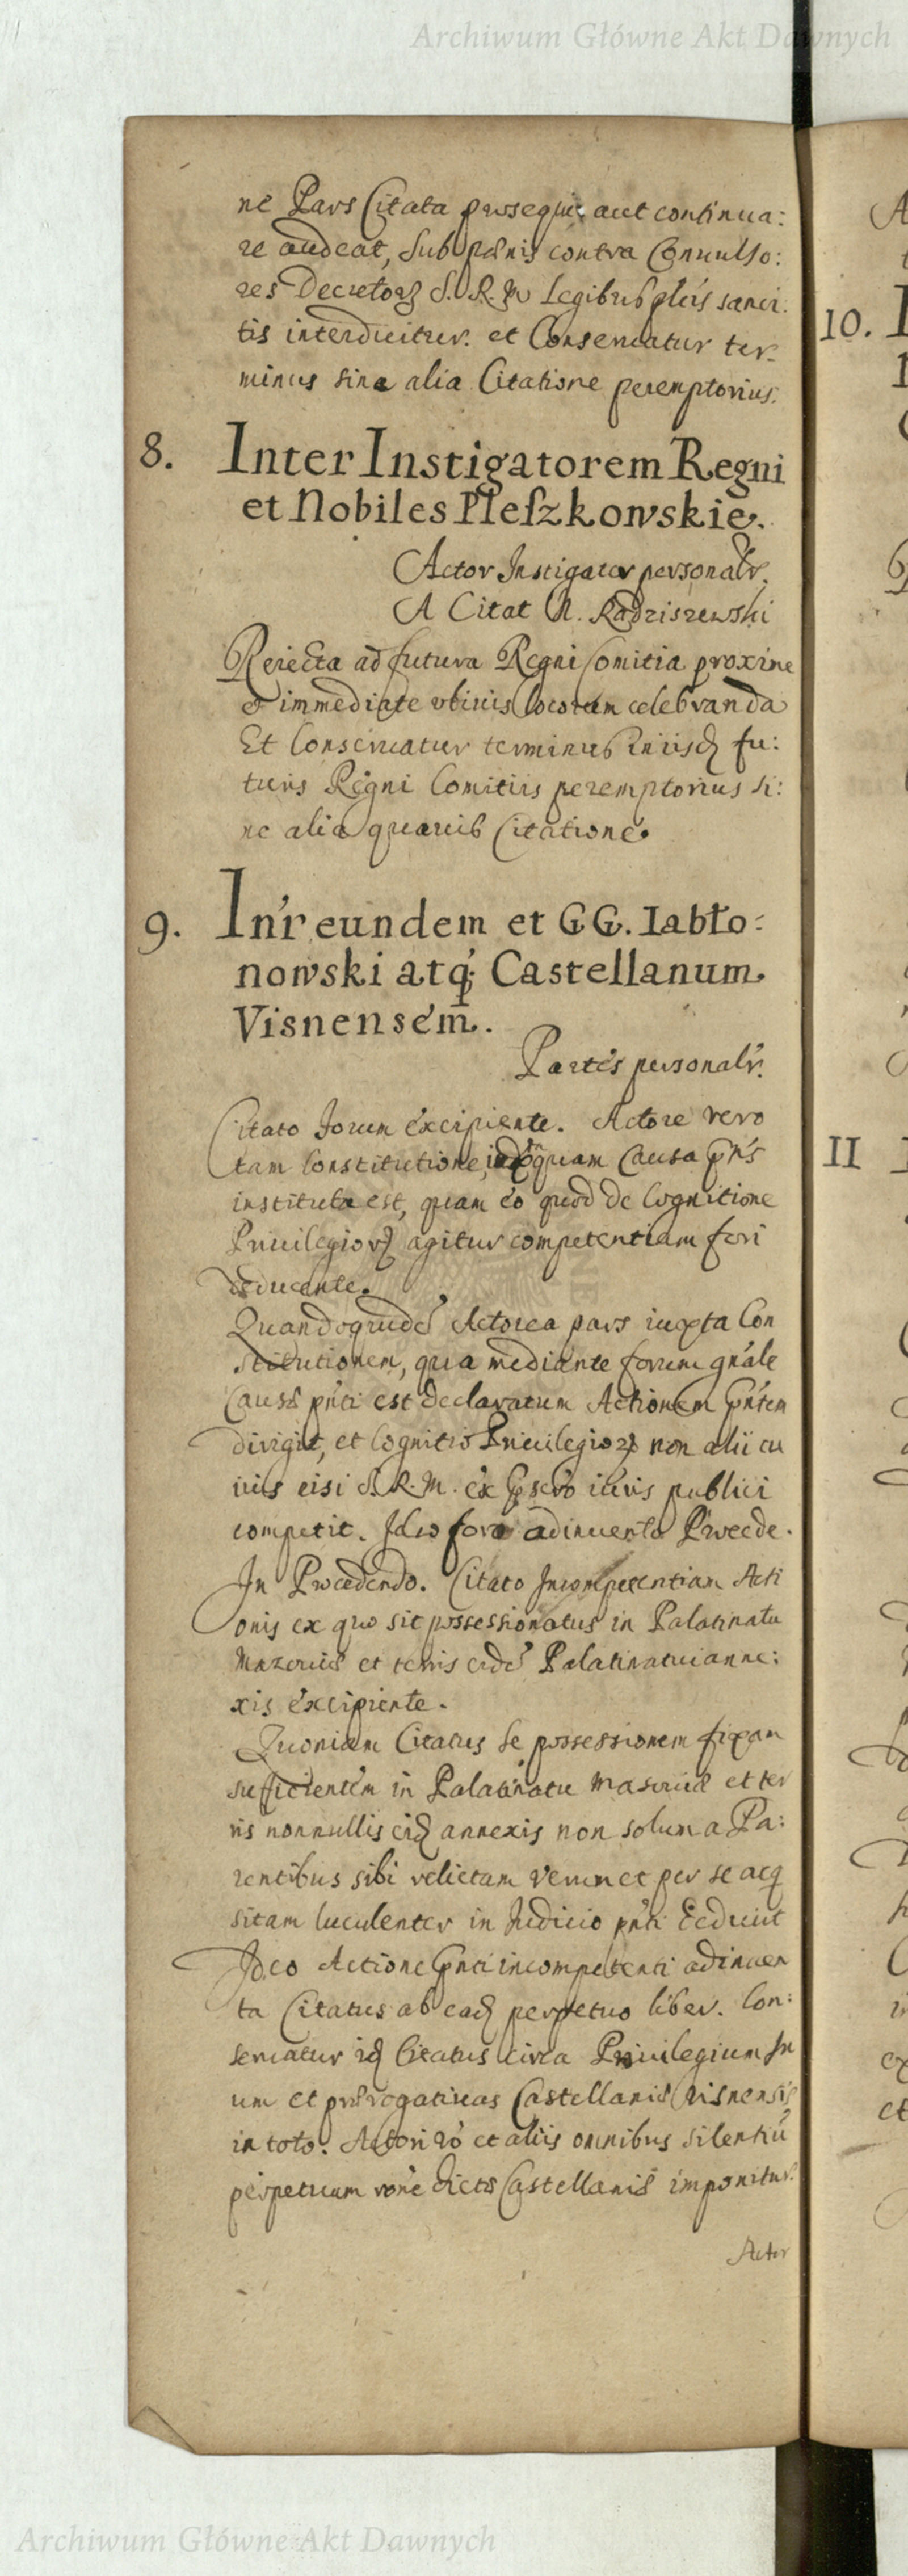 Archiwum Główne Akt Dawnych
ne Pars Citata persequi aut continua:
re audeat, sub pænis contra Convulso:
res Decretorꝝ S. R. M Legibus pleis sanci:
tis interdicitur. et Conservatur ter-
minus sine alia Citatione peremptorius.
8. Inter Instigatorem Regni
et Nobiles Pleszkowskie.
Actor Instigator personalr.
A Citat N. Radziszewski
Reiecta ad futura Regni Comitia proxime
et immediate vbivis locorum celebranda
Et Conservatur terminus in iisdꝫ fu:
turis Regni Comitiis peremptorius si:
ne alia quavis Citatione.
9. Int'r eundem et GG. Iabło:
nowski atqꝫ Castellanum
Visnensem.
Partes personalr.
Citato Forum excipiente. Actore vero
tam Constitutione, quam Causa pn's
instituta est, quam eo quod de Cognitione
Privilegiorꝝ agitur competentiam fori
deducente.
Quandoquide' Actorea pars iuxta Con
stitutionem, qua mediante forum gn'ale
Causæ pn'ti est declaratum Actionem pn'tem
dirigit, et Cognitio Privilegiorꝝ non alii cu
ivis nisi S. R. M. ex iuris publici
competit. Ideo foro adinvento Procede.
In Procedendo. Citato Incompetentiam Acti
onis ex quo sit possessionatus in Palatinatu
Mazoviæ et terris eide' Palatinatui anne:
xis excipiente.
Quoniam Citatus se possessionem fixam
sufficientem in Palatinatu Masoviæ et ter
ris nonnullis eidꝫ annexis non solum a Pa:
rentibus sibi relictam verum et per se acq
sitam luculenter in Iudicio pn'ti Eduxit
Ideo Actione pn'ti incompetenti adinven
ta Citatus ab eadꝫ perpetuo liber. Con:
servatur idꝫ Citatus circa Privilegium su
um et prærogativas Castellaniæ Visnensis
in toto. Actori vo' et aliis omnibus silentiu'
perpetuum rone dictæ Castellaniæ imponitur.
Actor
10.
II
Archiwum Główne Akt Dawnych